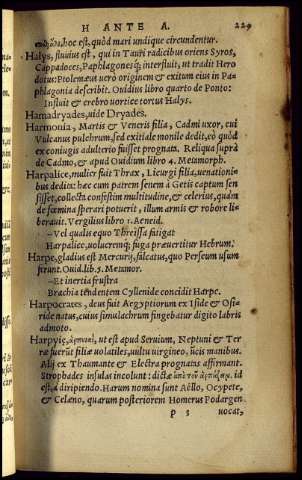 H ANTE A. 229
hoc est, quòd mari undique circundentur.
Halys, fluuius est, qui in Tauri radicibus oriens Syros,
Cappadoces, Paphlagonesq; interfluit, ut tradit Hero
dotus: Ptolemæus uero originem & exitum eius in Pa-
phlagonia describit. Ouidius libro quarto de Ponto:
Influit & crebro uortice tortus Halys.
Hamadryades, uide Dryades.
Harmonia, Martis & Veneris filia, Cadmi uxor, cui
Vulcanus pulchrum, sed exitiale monile dedit, eò quòd
ex coniugis adulterio fuisset prognata. Reliqua suprà
de Cadmo, & apud Ouidium libro 4. Metamorph.
Harpalice, mulier fuit Thrax, Licurgi filia, uenationi-
bus dedita: hæc cum patrem senem à Getis captum sen
sisset, collecta confestim multitudine, & celerius, quàm
de fœmina sperari potuerit, illum armis & robore li-
berauit. Vergilius libro 1. Aeneid.
–Vel qualis equo Threissa fatigat
Harpalice, uolucremq; fuga præuertitur Hebrum.
Harpe, gladius est Mercurij, falcatus, quo Perseum usum
ferunt. Ouid. lib. 5. Metamor.
–Et inertia frustra
Brachia tendentem Cyllenide concidit Harpe.
Harpocrates, deus fuit Aegyptiorum ex Iside & Osi-
ride natus, cuius simulachrum fingebatur digito labris
admoto.
Harpyię, ἅρπυιαι, ut est apud Seruium, Neptuni & Ter
ræ fuerũt filiæ uolatiles, uultu uirgineo, ūcis manibus.
Alij ex Thaumante & Electra prognatas affirmant.
Strophades insulas incolunt: dictæ ἀπὸ τοῦ ἁρπάζειν. id
est, à diripiendo. Harum nomina sunt Aëllo, Ocypete,
& Celæno, quarum posteriorem Homerus Podargen
P 5 uocat,